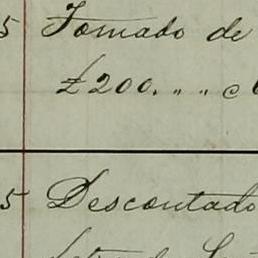 5 Tomado de
£200. " " @
5 Descontado